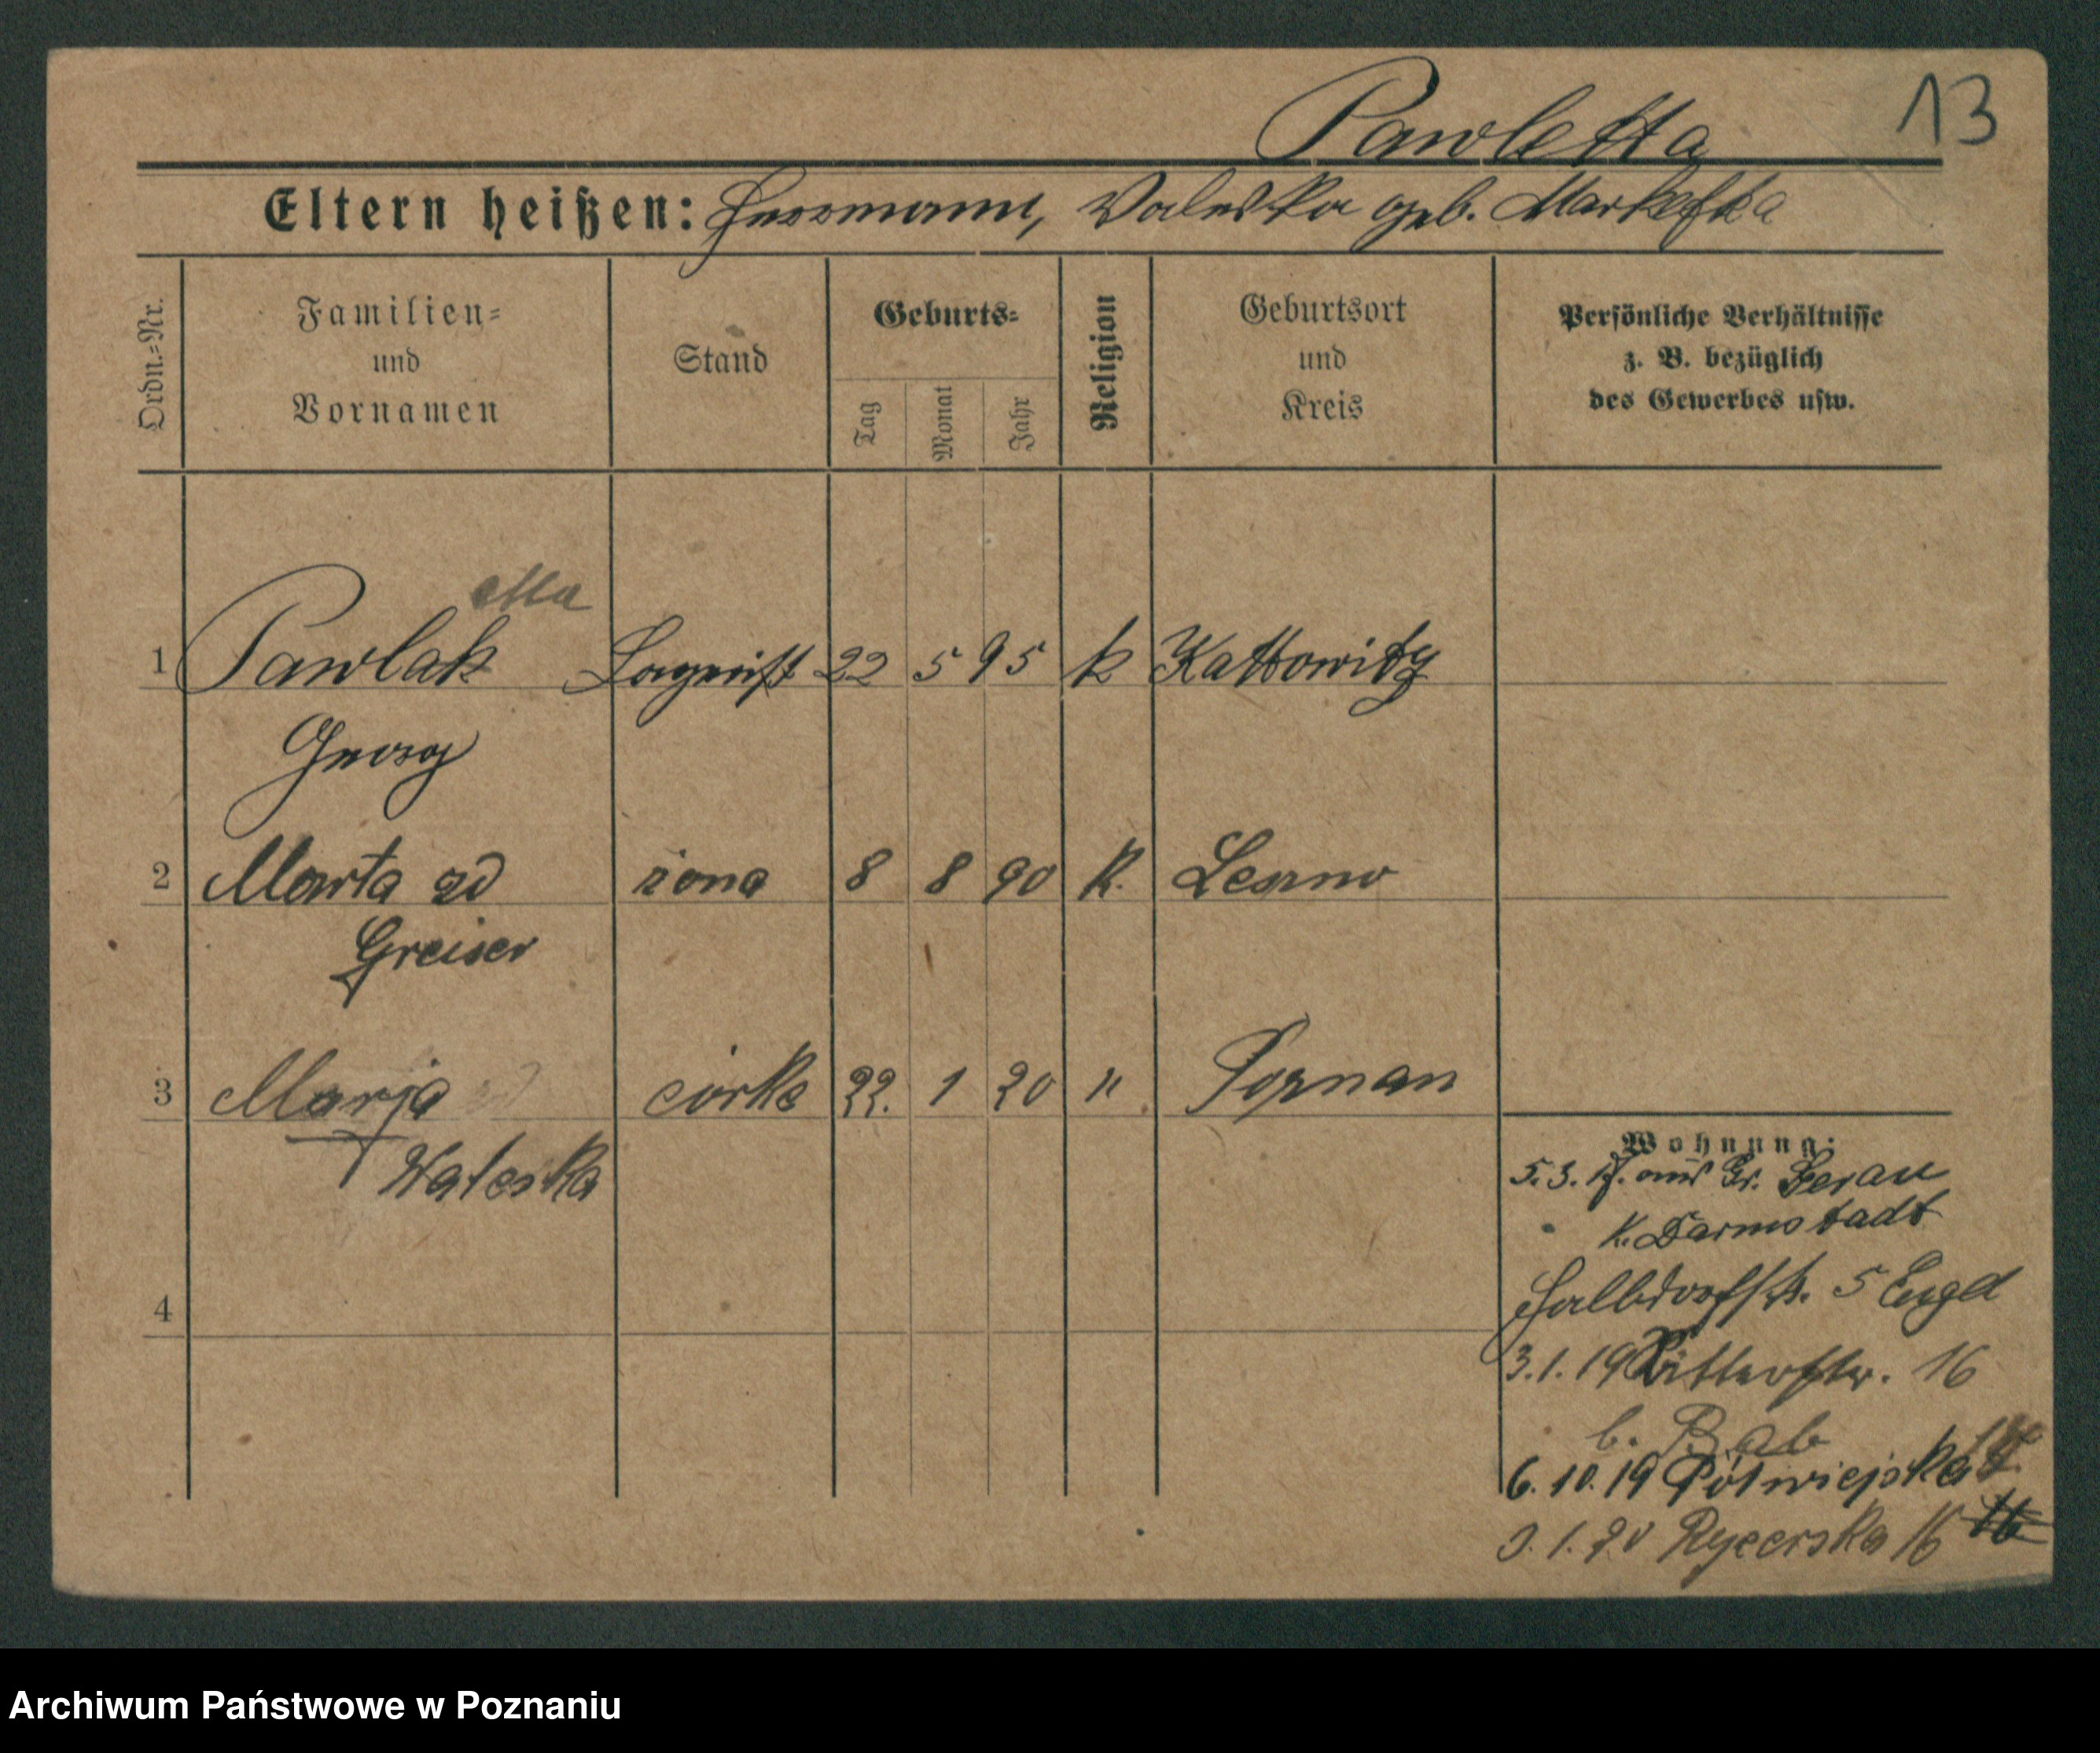 13
Pawletta
Eltern heißen: Hermann, Valeska geb. Markefka
Ordn.-Nr.
Familien-
und
Vornamen
Stand
Geburts-
Tag
Monat
Jahr
Religion
Geburtsort
und
Kreis
Persönliche Verhältnisse
z. B. bezüglich
des Gewerbes usw.
etta
1 Pawlak 22 5 95 k Kattowitz
Georg
2 Marta zd żona 8 8 90 k. Leszno
Greiser
3 Marja córka 22. 1 20 " Poznan
Waleska
4
Wohnung:
5.3.17. aus Gr. Gerau
K. Darmstadt
Halbdorfstr. 5
3.1.19 Ritterstr. 16
b. Bab
6.10.19 Półwiejska
3.1.20 Rycerska 16 16
Archiwum Państwowe w Poznaniu